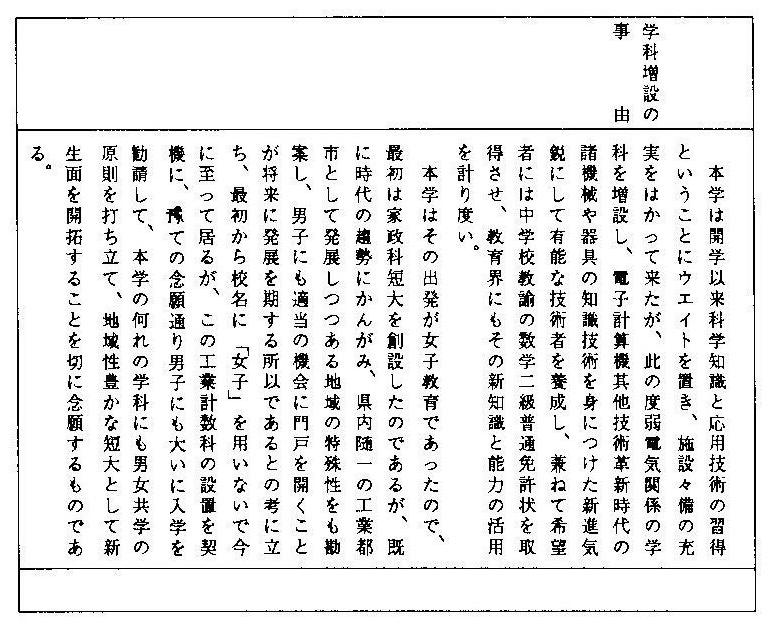 学科増設の
事　由
　本学は開学以来科学知識と応用技術の習得
ということにウエイトを置き、施設々備の充
実をはかって来たが、此の度弱電気関係の学
科を増設し、電子計算機其他技術革新時代の
諸機械や器具の知識技術を身につけた新進気
鋭にして有能な技術者を養成し、兼ねて希望
者には中学校教諭の数学二級普通免許状を取
得させ、教育界にもその新知識と能力の活用
を計り度い。
　本学はその出発が女子教育であったので、
最初は家政科短大を創設したのであるが、既
に時代の趨勢にかんがみ、県内随一の工業都
市として発展しつつある地域の特殊性をも勘
案し、男子にも適当の機会に門戸を開くこと
が将来に発展を期する所以であるとの考に立
ち、最初から校名に「女子」を用いないで今
に至って居るが、この工業計数科の設置を契
機に、豫ての念願通り男子にも大いに入学を
勧請して、本学の何れの学科にも男女共学の
原則を打ち立て、地域性豊かな短大として新
生面を開拓することを切に念願するものであ
る。